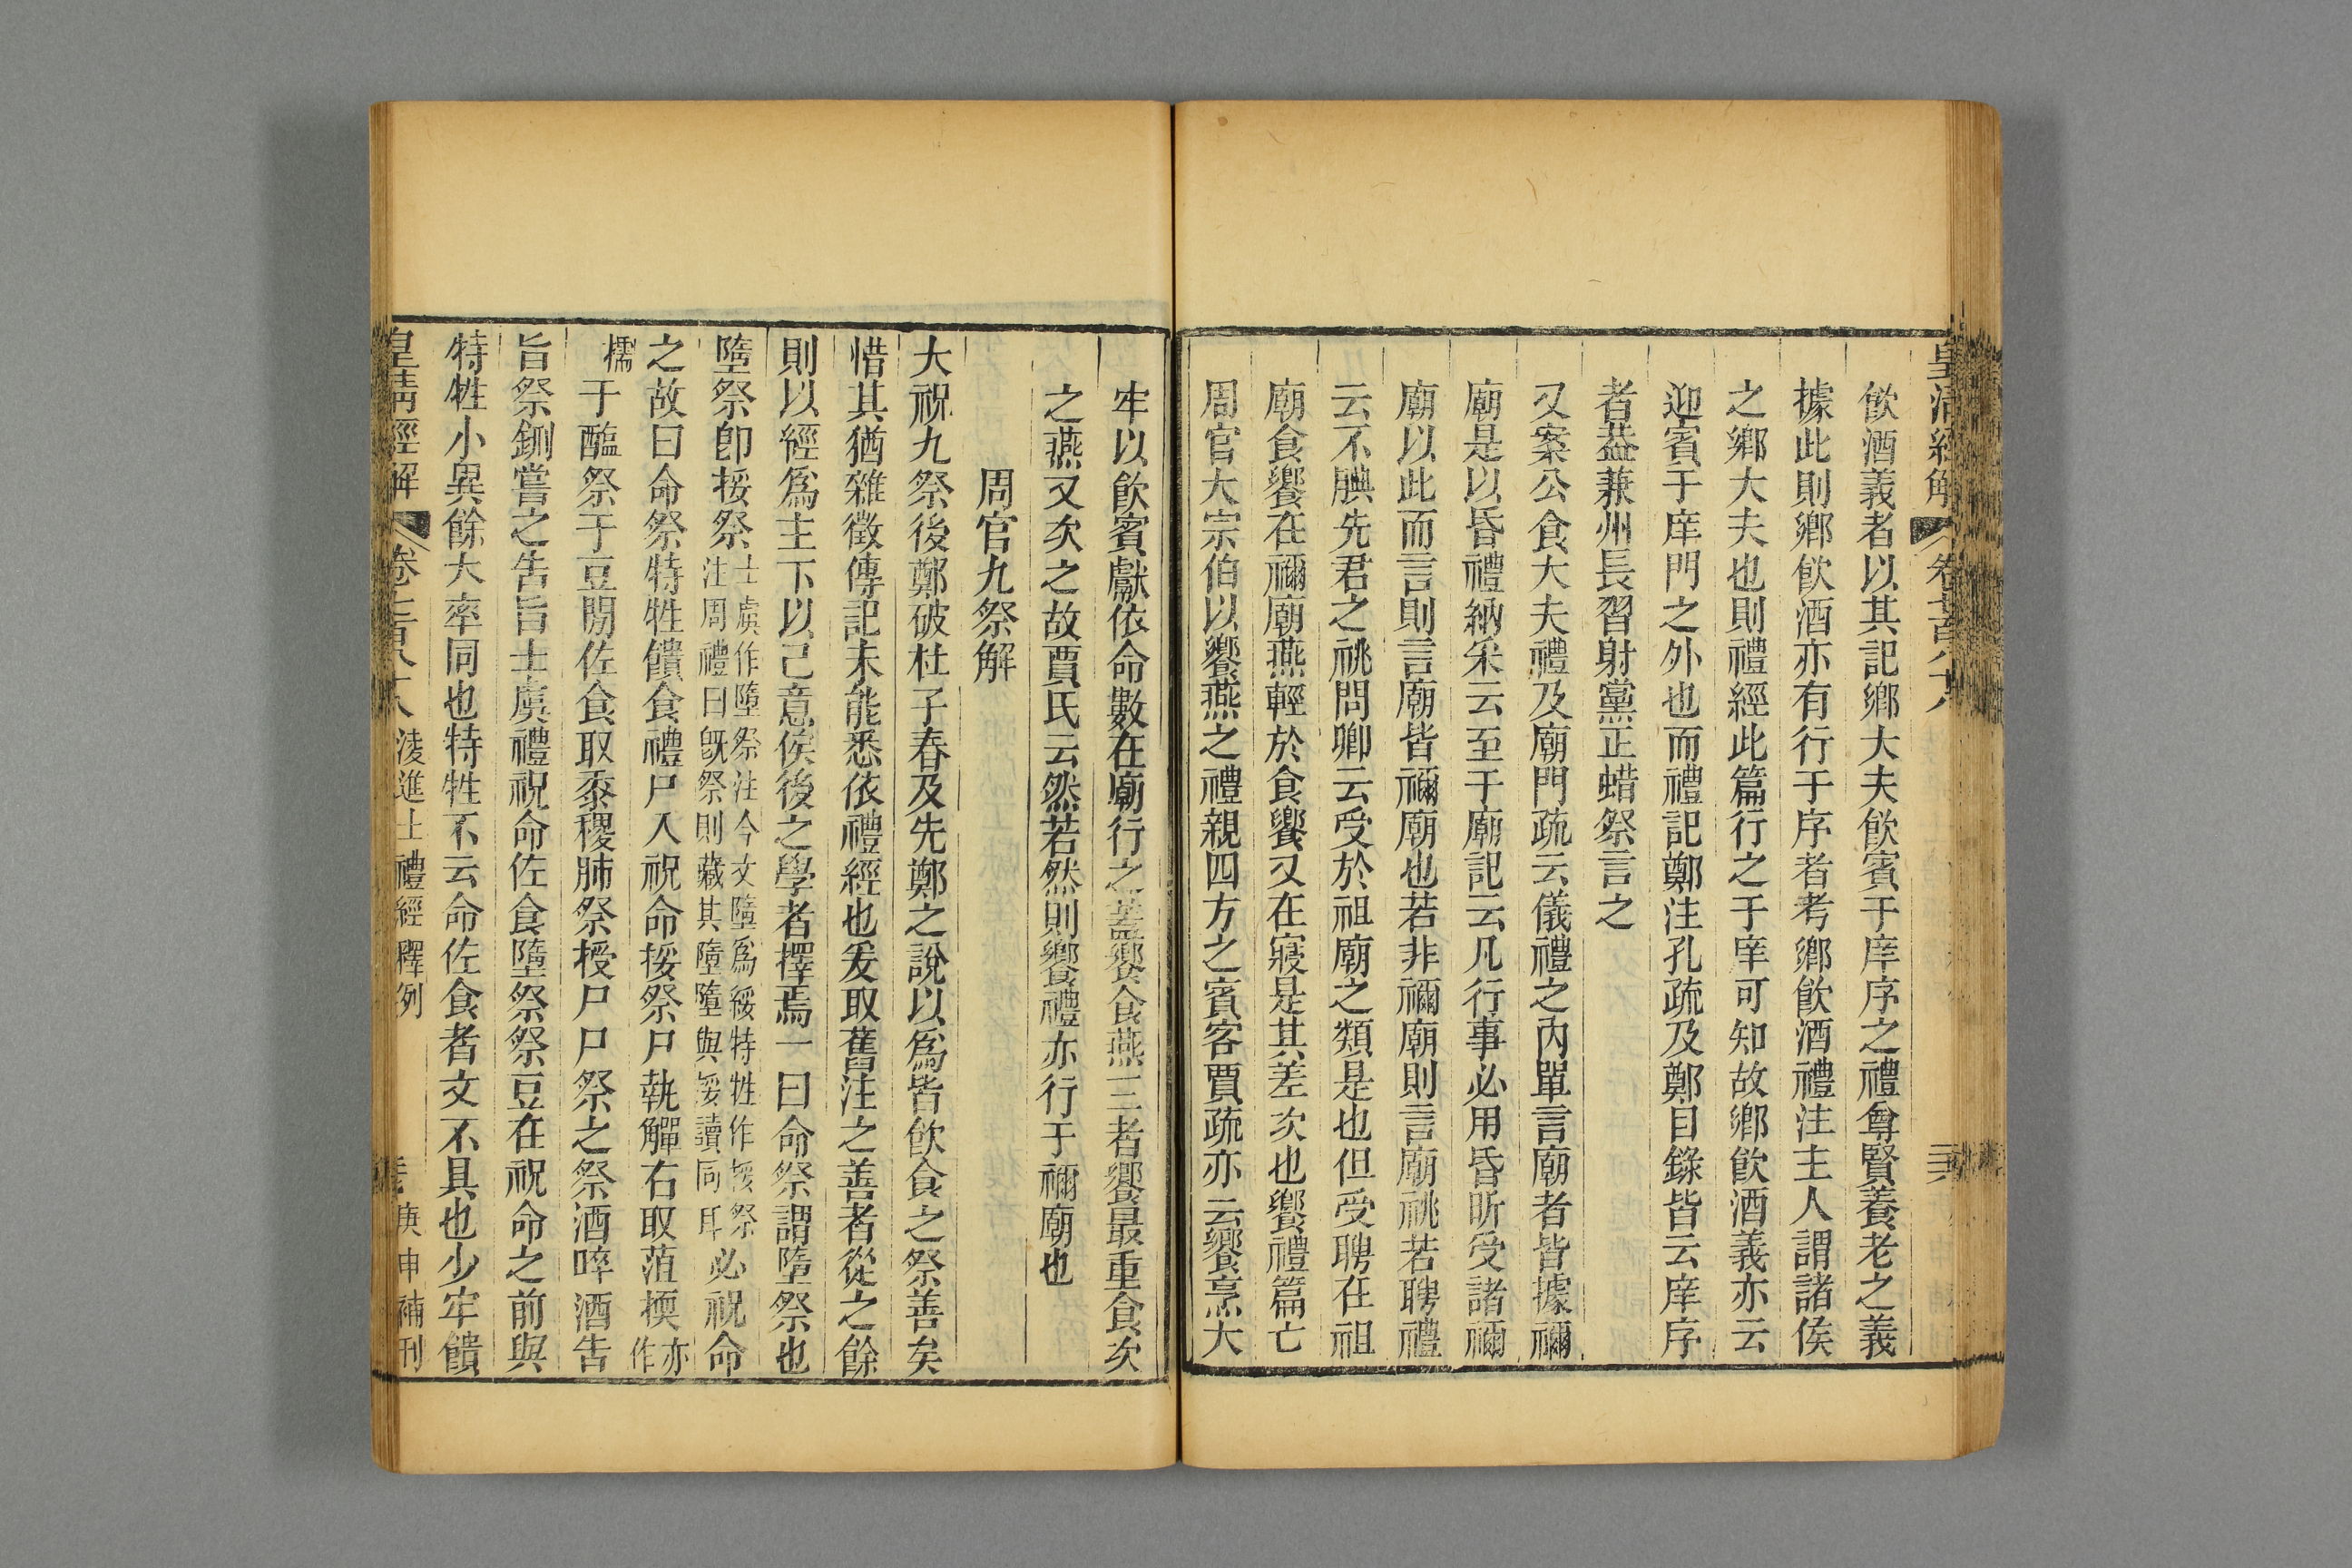 皇清經解 卷七百八十八
飮酒義者以其記鄉大夫飮賓于庠序之禮尊賢養老之義
據此則鄉飮酒亦有行于序者考鄉飮酒禮注主人謂諸侯
之鄉大夫也則禮經此篇行之于庠可知故鄉飮酒義亦云
迎賓于庠門之外也而禮記鄭注孔疏及鄭目錄皆云庠序
者葢兼州長習射黨正蜡祭言之
又案公食大夫禮及廟門疏云儀禮之內單言廟者皆據禰
廟是以昏禮納采云至于廟記云凡行事必用昏昕受諸禰
廟以此而言則言廟皆禰廟也若非禰廟則言廟祧若聘禮
云不腆先君之祧問卿云受於祖廟之類是也但受聘在祖
廟食饗在禰廟燕輕於食饗又在寢是其差次也饗禮篇亡
周官大宗伯以饗燕之禮親四方之賓客賈疏亦云饗烹大
牢以飮賓獻依命數在廟行之葢饗食燕三者饗最重食次
之燕又次之故賈氏云然若然則饗禮亦行于禰廟也
周官九祭解
大祝九祭後鄭破杜子春及先鄭之說以爲皆飮食之祭善矣
惜其猶雜徵傳記未能悉依禮經也爰取舊注之善者從之餘
則以經爲主下以己意俟後之學者擇焉一曰命祭謂墮祭也
墮祭卽挼祭士虞作墮祭注今文墮爲綏特牲作挼祭注周禮曰旣祭則藏其墮墮與挼讀同耳必祝命
之故曰命祭特牲饋食禮尸入祝命挼祭尸執觶右取菹㨎亦作
擩于醢祭于豆閒佐食取黍稷肺祭授尸尸祭之祭酒啐酒告
旨祭鉶嘗之告旨士虞禮祝命佐食墮祭祭豆在祝命之前與
特牲小異餘大率同也特牲不云命佐食者文不具也少牢饋
皇清經解 卷七百八十八 淩進士禮經釋例 庚申補刊